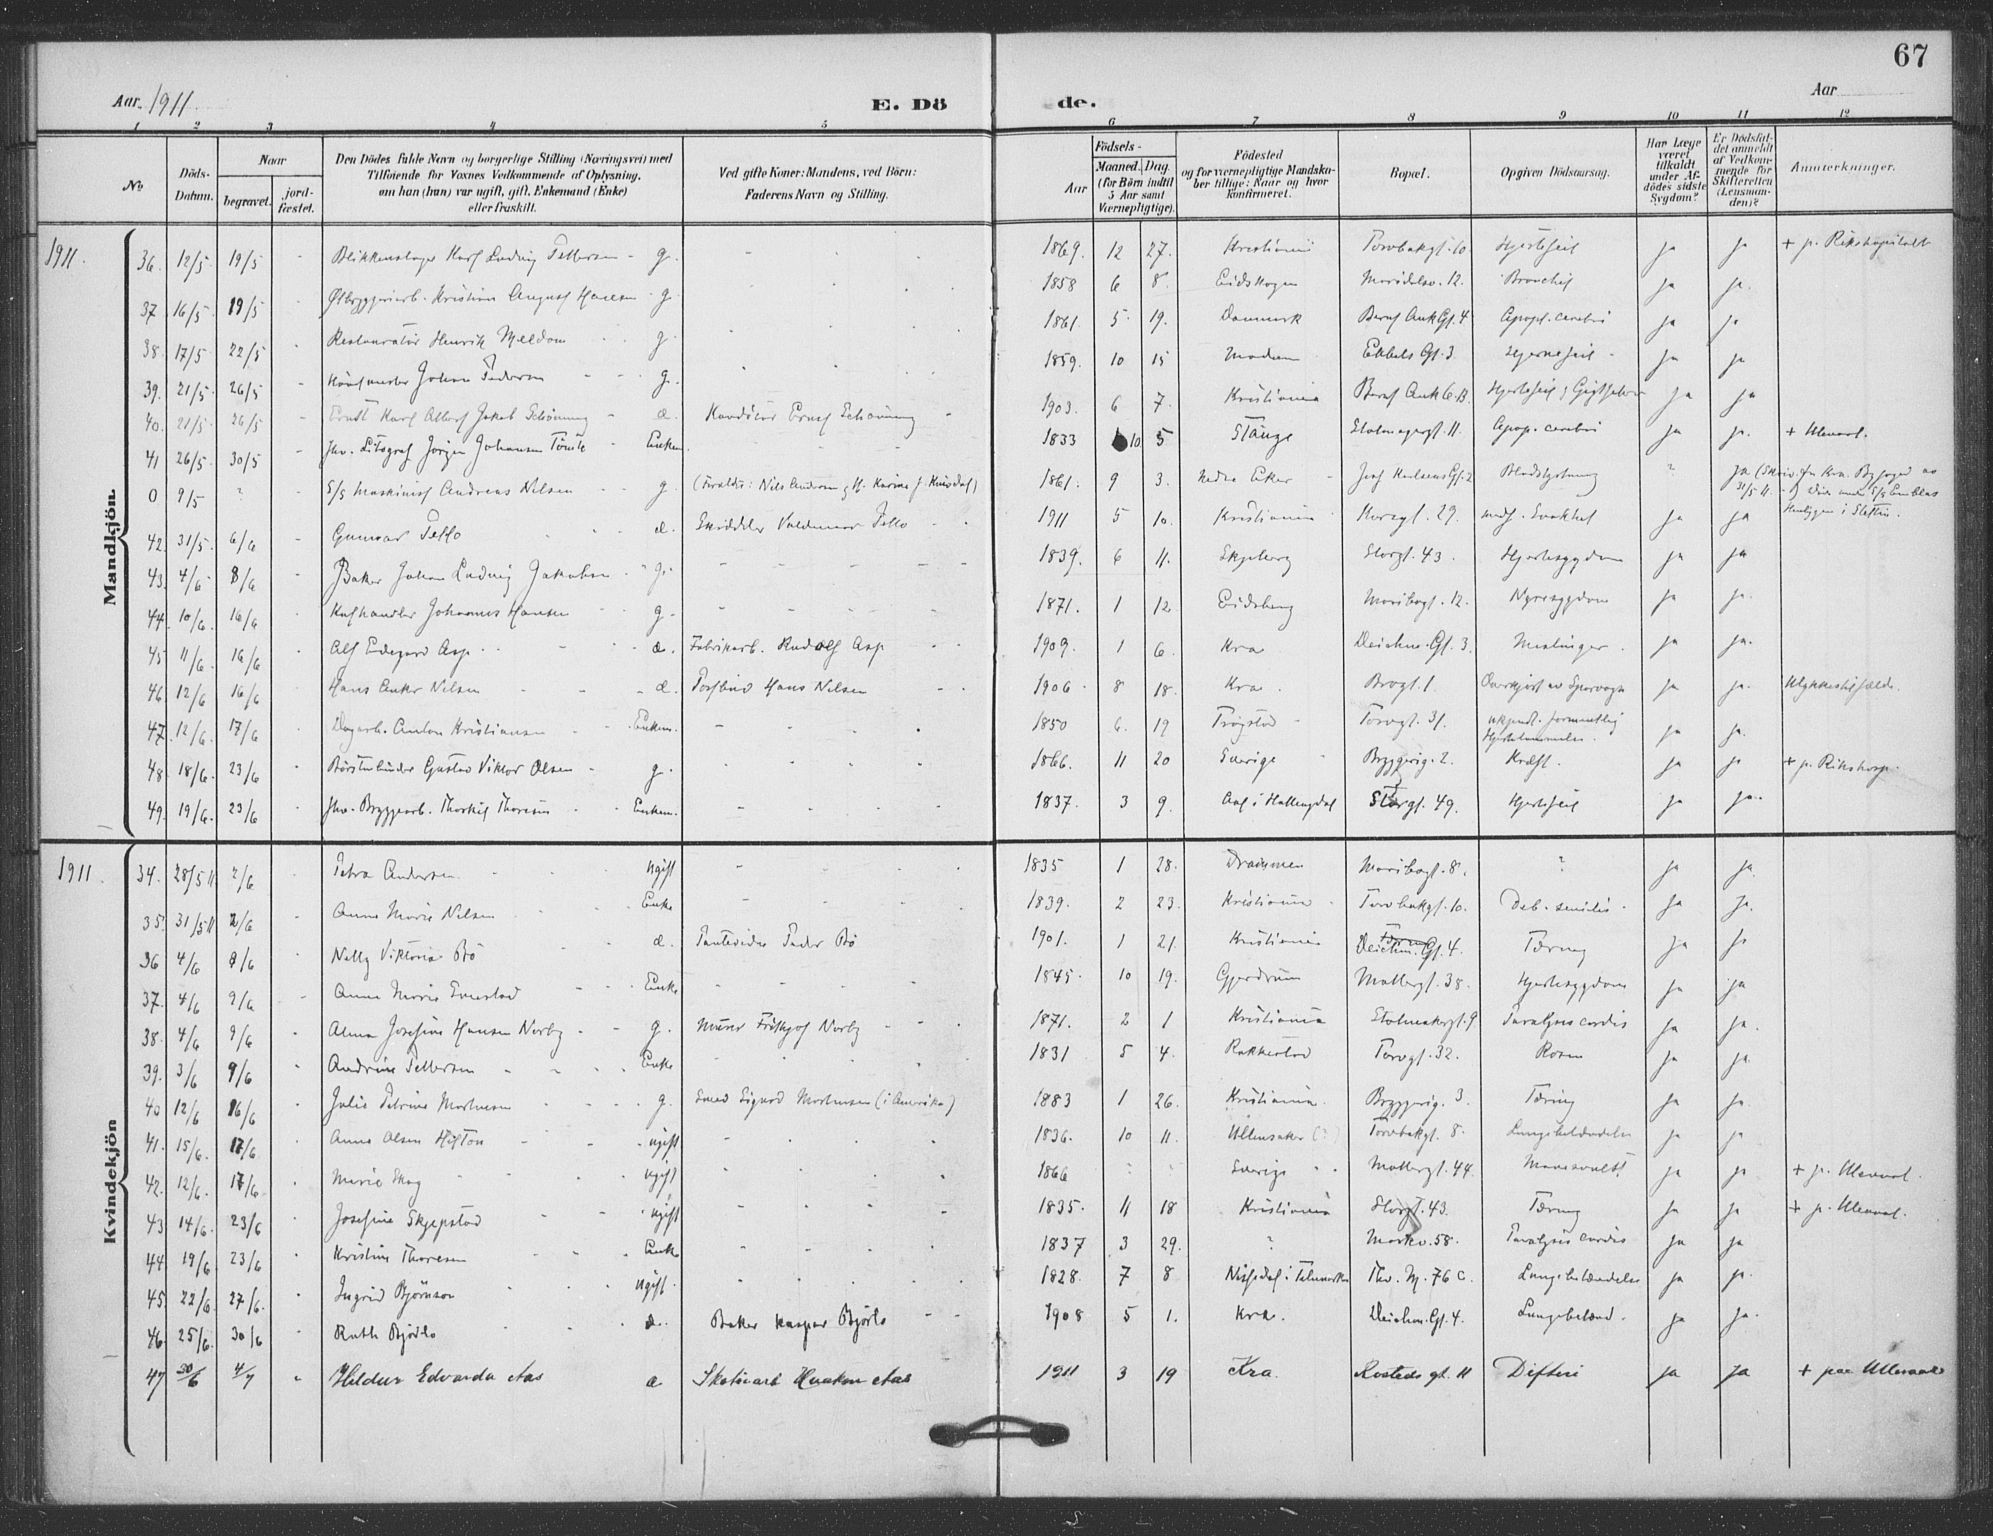 67
Aar 1911
E. Dö
de.
Aar
1 2 3 4 5 6 7 8 9 10 11 12
No
Döds-Datum.
Naar
begravet.
jord-fæstet.
Den Dödes fulde Navn og borgerlige Stilling (Næringsvei) med
Tilföiende for Voxnes Vedkommende af Oplysning,
om han (hun) var ugift, gift, Enkemand (Enke)
eller fraskilt.
Ved gifte Koner: Mandens, ved Börn:
Faderens Navn og Stilling.
Födsels-
Aar
Maaned. Dag.
(for Börn indtil
5 Aar samt
Værnepligtige).
Födested
og for værnepligtige Mandska-
ber tillige: Naar og hvor
konfirmeret.
Bopæl.
Opgiven Dödsaarsag.
Har Læge
været
tilkaldt
under Af-
dödes sidste
Sygdom?
Er Dödsfal-
det anmeldt
af Vedkom-
mende for
Skifteretten
(Lensman-
den)?
Anmærkninger.
Mandkjön.
1911. 36. 12/5 19/5 - Blikkenslager Karl Ludvig Pettersen - g. 1869. 12 27. Kristiania Torvbakgt. 10 Hjertefeil ja ja + p. Rikshospitalet
37 16/5 19/5 Ølbryggeriarb. Kristian August Hansen g. 1858 6 8. Eidskogen Maridalsv. 12. Bronchit ja ja.
38. 17/5 22/5 Restauratør Henrik Meldom g. 1861. 5 19. Danmark Bernt Ank Gt. 4 Apopl. cerebri ja ja
39. 21/5 26/5 Johan Pedersen g. 1859. 10 15 Modum Ebbels Gt. 3. Hjernefeil - ja ja
40. 21/5 26/5 Ernst Karl Albert Jakob Schönning d. Ernst Schönning 1903. 6 7. Kristiania Bernt Ank G. B. Hjertefeil ja ja
41 26/5 30/5 fhv. Litograf Jörgen Johansen Enkem. 1833 10 5 Stange Stolmagergt. 11. Apop. cerebri ja ja. + Ulleval.
0 9/5 ? S/S Maskinist Andreas Nilsen g. (Forældre: Nils Andersen og H. Karine f. ) 1861. 9 3. Nedre Eker - Blodstyrtning ? ja
31/5 11.
42. 31/5 6/6 Gunnar Pello d. Valdemar Pello 1911 5 10. Kristiania Korsgt. 29. ja ja
43. 4/6 8/6 Baker Johan Ludvig Jakobsen g. 1839. 6 11. Skjeberg Storgt. 43. Hjertesygdom ja ja
44. 10/6 16/6 Johannes Hansen g. 1871. 1 12. Eidsberg Maribogt. 12. Nyresygdom ja ja.
45 11/6 16/6 Alf Edegard Asp d. Fabrikarb. Rudolf Asp 1909. 1 6. Kra Deichm. Gt. 3. Meslinger ja ja.
46 12/6 16/6 Hans Anker Nilsen d. Hans Nilsen 1906 8 18. Kra. Brogt. 1. Overkjørt av Sporvogn ja ja. Ulykkestilfælde.
47. 12/6. 17/6 Dagarb. Anton Kristiansen Enkem. 1850 6. 19 Trøgstad Torvgt. 31. ukjendt. formentlig ja ja.
48. 18/6. 23/6 Børstenbinder Gustav Viktor Olsen g. 1866. 11 20 Sverige Bryggerig. 2. Kræft. ja ja + p. Rikshosp.
49. 19/6. 23/6 fhv. Bryggearb. Thorkil Thoresen Enkem. 1837. 3 9. Aal i Hallingdal Storgt. 49. Hjertefeil ja ja.
Kvindekjön
1911 34. 28/5 11. 2/6 Petra Andersen ugift 1835 1 28. Drammen Maribogt. 8. ? ja ja.
35. 31/5 11 2/6 Anne Marie Nilsen Enke 1839. 2 23. Kristiania Torvbakgt. 10. Deb. senilis. ja ja.
36 4/6 8/6 Nelly Viktoria Bö d. Peder Bö 1901. 1 21. Kristiania Deichm. Gt. 4. Tæring ja ja
37. 4/6 9/6 Anne Marie Enke 1845. 10 19. Gjerdrum Møllergt. 38. Hjertesygdom ja ja
38. 4/6 9/6 Alma Josefine Hansen Norby g. Murer Frithjof Norby 1871. 2 1 Kristiania Paralysis cordis ja ja.
39. 3/6 9/6 Andrine Pettersen Enke 1831 5 4. Rakkestad Torvgt. 32. Rosen ja ja.
40 12/6 16/6 Julie Petrine Mortensen g. Smed Sigurd Mortensen (i Amerika) 1883 1 26. Kristiania. Bryggerig. 3. Tæring ja ja.
41. 15/6. 17/6 Anne Olsen ugift 1836. 10 11. Ullensaker (?) Torvbakgt. 8. Lungebetændelse ja ja
42. 12/6. 17/6. Marie Skog ugift 1866 Sverige Møllergt. 44. Mavesvulst ja ja + p. Ulleval.
43 14/6. 23/6 Josefine Skjepstad ugift 1835. 11 18 Kristiania Storgt. 43. Tæring ja ja + p. Ulleval.
44. 19/6 23/6 Kristine Thoresen Enke 1837 3 29. ? Markv. 58. Paralysis cordis ja ja
45. 22/6 27/6. Ingrid Bjørnson ugift. 1828. 7 8 Nissedal i Telemarken Thv. M. 76 c. Lungebetændelse ja ja.
46. 25/6. 30/6 Ruth Bjørlo d. Baker Kaspar Bjørlo 1908 5 1. Kra. Deichm. Gt. 4. Lungebetænd. ja ja.
47 30/6 4/7 Hildur Edvarda Aas d Skotøiarb Haakon Aas 1911 3 19 Kra. Rosteds gt. 11 Difteri ja ja + paa Ullevaal